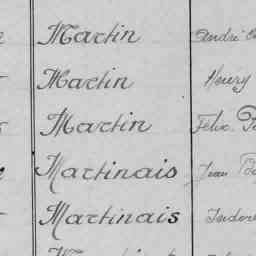 Martin André
Martin Henry
Martin Félix
Martinais Jean
Martinais Isidore